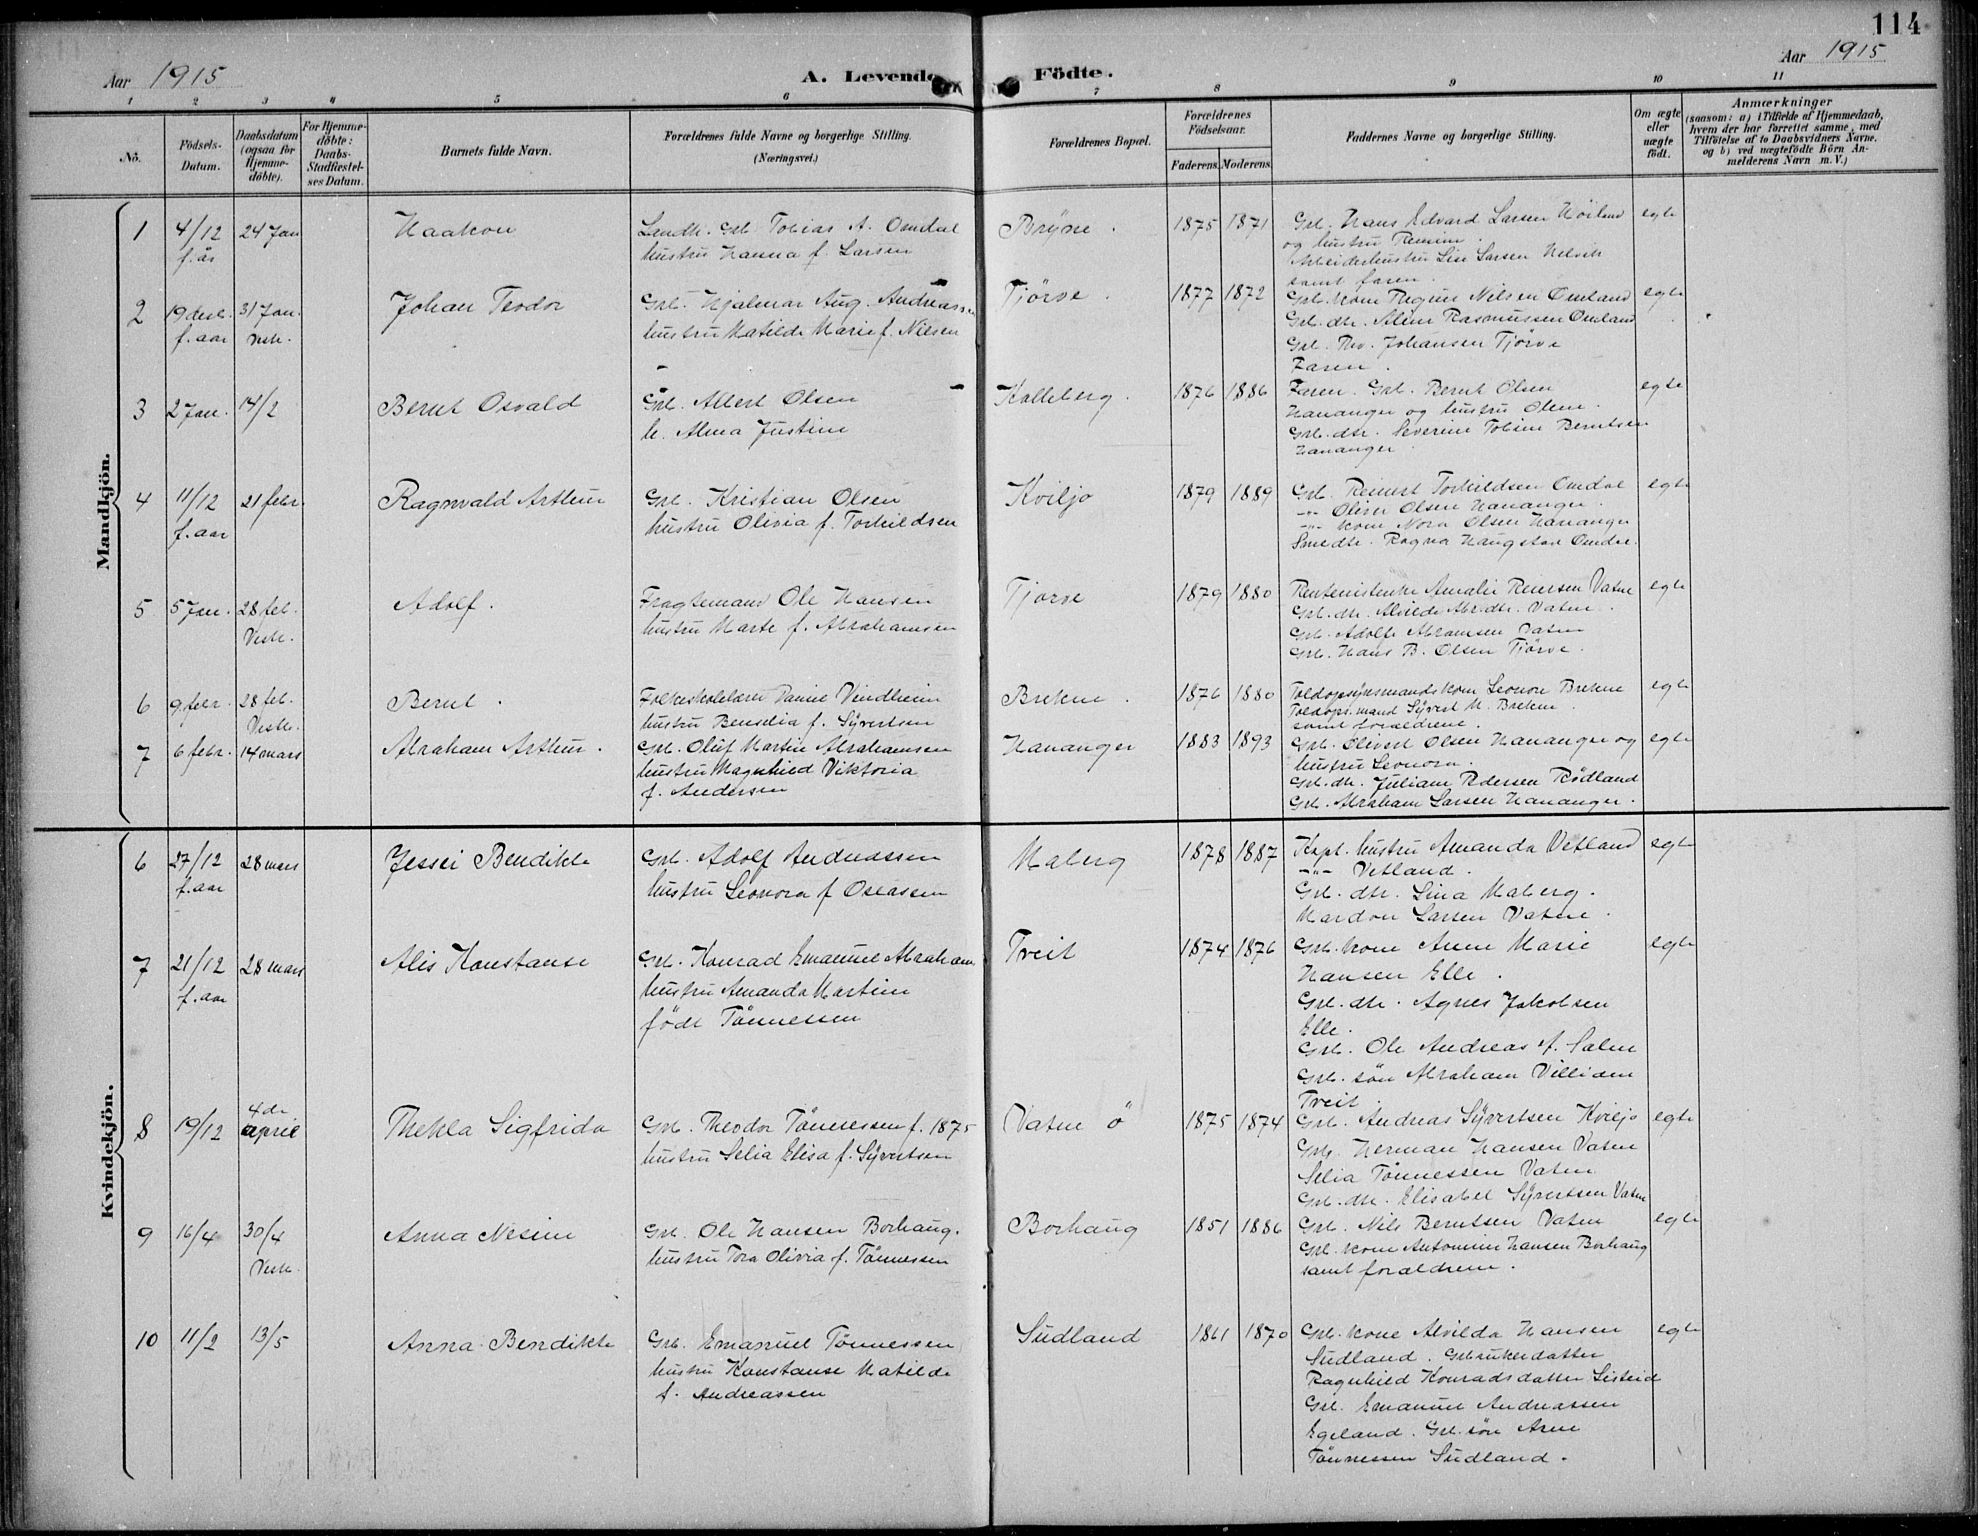 114
Aar 1915
A. Levende Födte.
Aar 1915
1 2 3 4 5 6 7 8 9 10 11
No.
Födsels-Datum.
Daabsdatum (ogsaa for Hjemme-döbte).
For Hjemme-döbte: Daabs-Stadfæstel-ses Datum.
Barnets fulde Navn.
Forældrenes fulde Navne og borgerlige Stilling.
(Næringsvei.)
Forældrenes Bopæl.
Forældrenes Födselsaar.
Faderens. Moderens.
Faddernes Navne og borgerlige Stilling.
Om ægte eller uægte födt.
Anmærkninger
(saasom: a) i Tilfælde af Hjemmedaab, hvem der har forrettet samme, med Tilföielse af to Daabsvidners Navne. og b) ved uægtefödte Börn An-melderens Navn m. V.)
Mandkjön.
1 4/12 f. år 24 Jan Haakon
Landh. Grb. Tobias A. Omdal
hustru Hanna f. Larsen
Bryne. 1875 1871
Grb. Hans Edvard Larsen Höiland
og hustru
Arbeiderhustru Lise Larsen Helvik
samt faren.
egte
2 19 des. f. aar 31 Jan. Vest. Johan Teodor
Grb. Hjalmar Aug. Andreassen
hustru Matilde Marie f. Nilsen
Tjörve. 1877 1872
Grb. kone Regine Nilsen Omland
Grb. dtr. Aline Rasmussen Omland
Grb. Thv. Johansen Tjörve
Faren.
egte
3 2 Jan. 14/2 Bernt Osvald
Grb. Albert Olsen
h. Alma Justine
Kalleberg. 1876 1886
Faren. Grb. Bernt Olsen
Hananger og hustru Oline.
Grb. dtr. Severine Tobine Berntsen
Hananger.
egte
4 11/12 f. aar 21 febr. Ragnvald Arthur
Grb. Kristian Olsen
hustru Olivia f. Torkildsen
Kviljo 1879 1889
Grb. Reinert Torkildsen Omdal
-"- Oliver Olsen Hananger.
-"- kone Nora Olsen Hananger
Smeddtr. Ragna Haugstad Omdal.
egte
5 5 Jan. 28 feb. Vest. Adolf.
Fragtemand Ole Hansen
hustru Marte f. Abrahamsen
Tjorve 1879 1880
Amalie Reiersen Vatne
Grb. dtr. Alvilde Abr.dtr. Vatne.
Grb. Adolf Abramsen Vatne
Grb. Hans B. Olsen Tjörve.
egte
6 9 febr. 28 feb. Vest. Bernt.
Folkeskolelærer Daniel Vindheim
hustru Benedia f. Syvertsen
Brekne. 1876 1880
Toldopsynsmandskone Leonore Brekne
Toldops.mand Syvert M. Brekne.
samt forældrene.
egte
7 6 febr. 14 mars Abraham Arthur.
Grb. Oluf Martin Abrahamsen
hustru Magnhild Viktoria
f. Andersen
Hananger 1883 1893
Grb. Olivert Olsen Hananger og
hustru Leonora.
Grb. dtr. Juliane Pedersen Rödland
Grb. Abraham Larsen Hananger.
egte
Kvindekjön.
6 27/12 f. aar 28 mars Jessei Bendikte
Grb. Adolf Andreassen
hustru Leonora f Oseassen
Maberg 1878 1887
Kapt. hustru Amanda Vetland
-"- Vetland.
Grb. dtr. Sina Maberg.
Mardon Larsen Vatne.
egte
7 21/12 f. aar 28 mars Alis Konstanse
Grb. Konrad Emanuel Abraham.
hustru Amanda Martine
födt Tönnessen
Treit 1874 1876
Grb. kone Anne Marie
Hansen Elle.
Grb. dtr. Agnes Jakobsen
Elle.
Grb. Ole Andreas A.
Grb. sön Abraham
Treit.
egte
8 19/12 4de april Thekla Sigfrida
Grb. Theodor Tönnessen f. 1875
hustru Selia Elisa f. Syvertsen
Vatne ö 1875 1874
Grb. Andreas Syvertsen Kviljo
Grb. Herman Hansen Vatne
Selia Tönnessen Vatne
Grb. dtr. Elisabet Syvertsen Vatne
egte
9 16/4 30/4 Vest. Anna Nesine
Grb. Ole Hansen Borhaug.
hustru Tora Olivia f. Tönnessen
Borhaug 1851 1886
Grb. Nils Berntsen Vatne
Grb. kone Antomine Hansen Borhaug
samt forældrene.
egte
10 11/2 13/5 Anna Bendikte
Grb. Emanuel Tönnessen
hustru Konstanse Matilde
f. Andreassen
Sudland 1861 1870
Grb. kone Alvilda Hansen
Sudland. Grbrukerdatter
Ragnhild Konradsdatter
Grb. Emanuel Andreassen
Egeland. Grb. sön Arne
Tönnessen Sudland.
egte